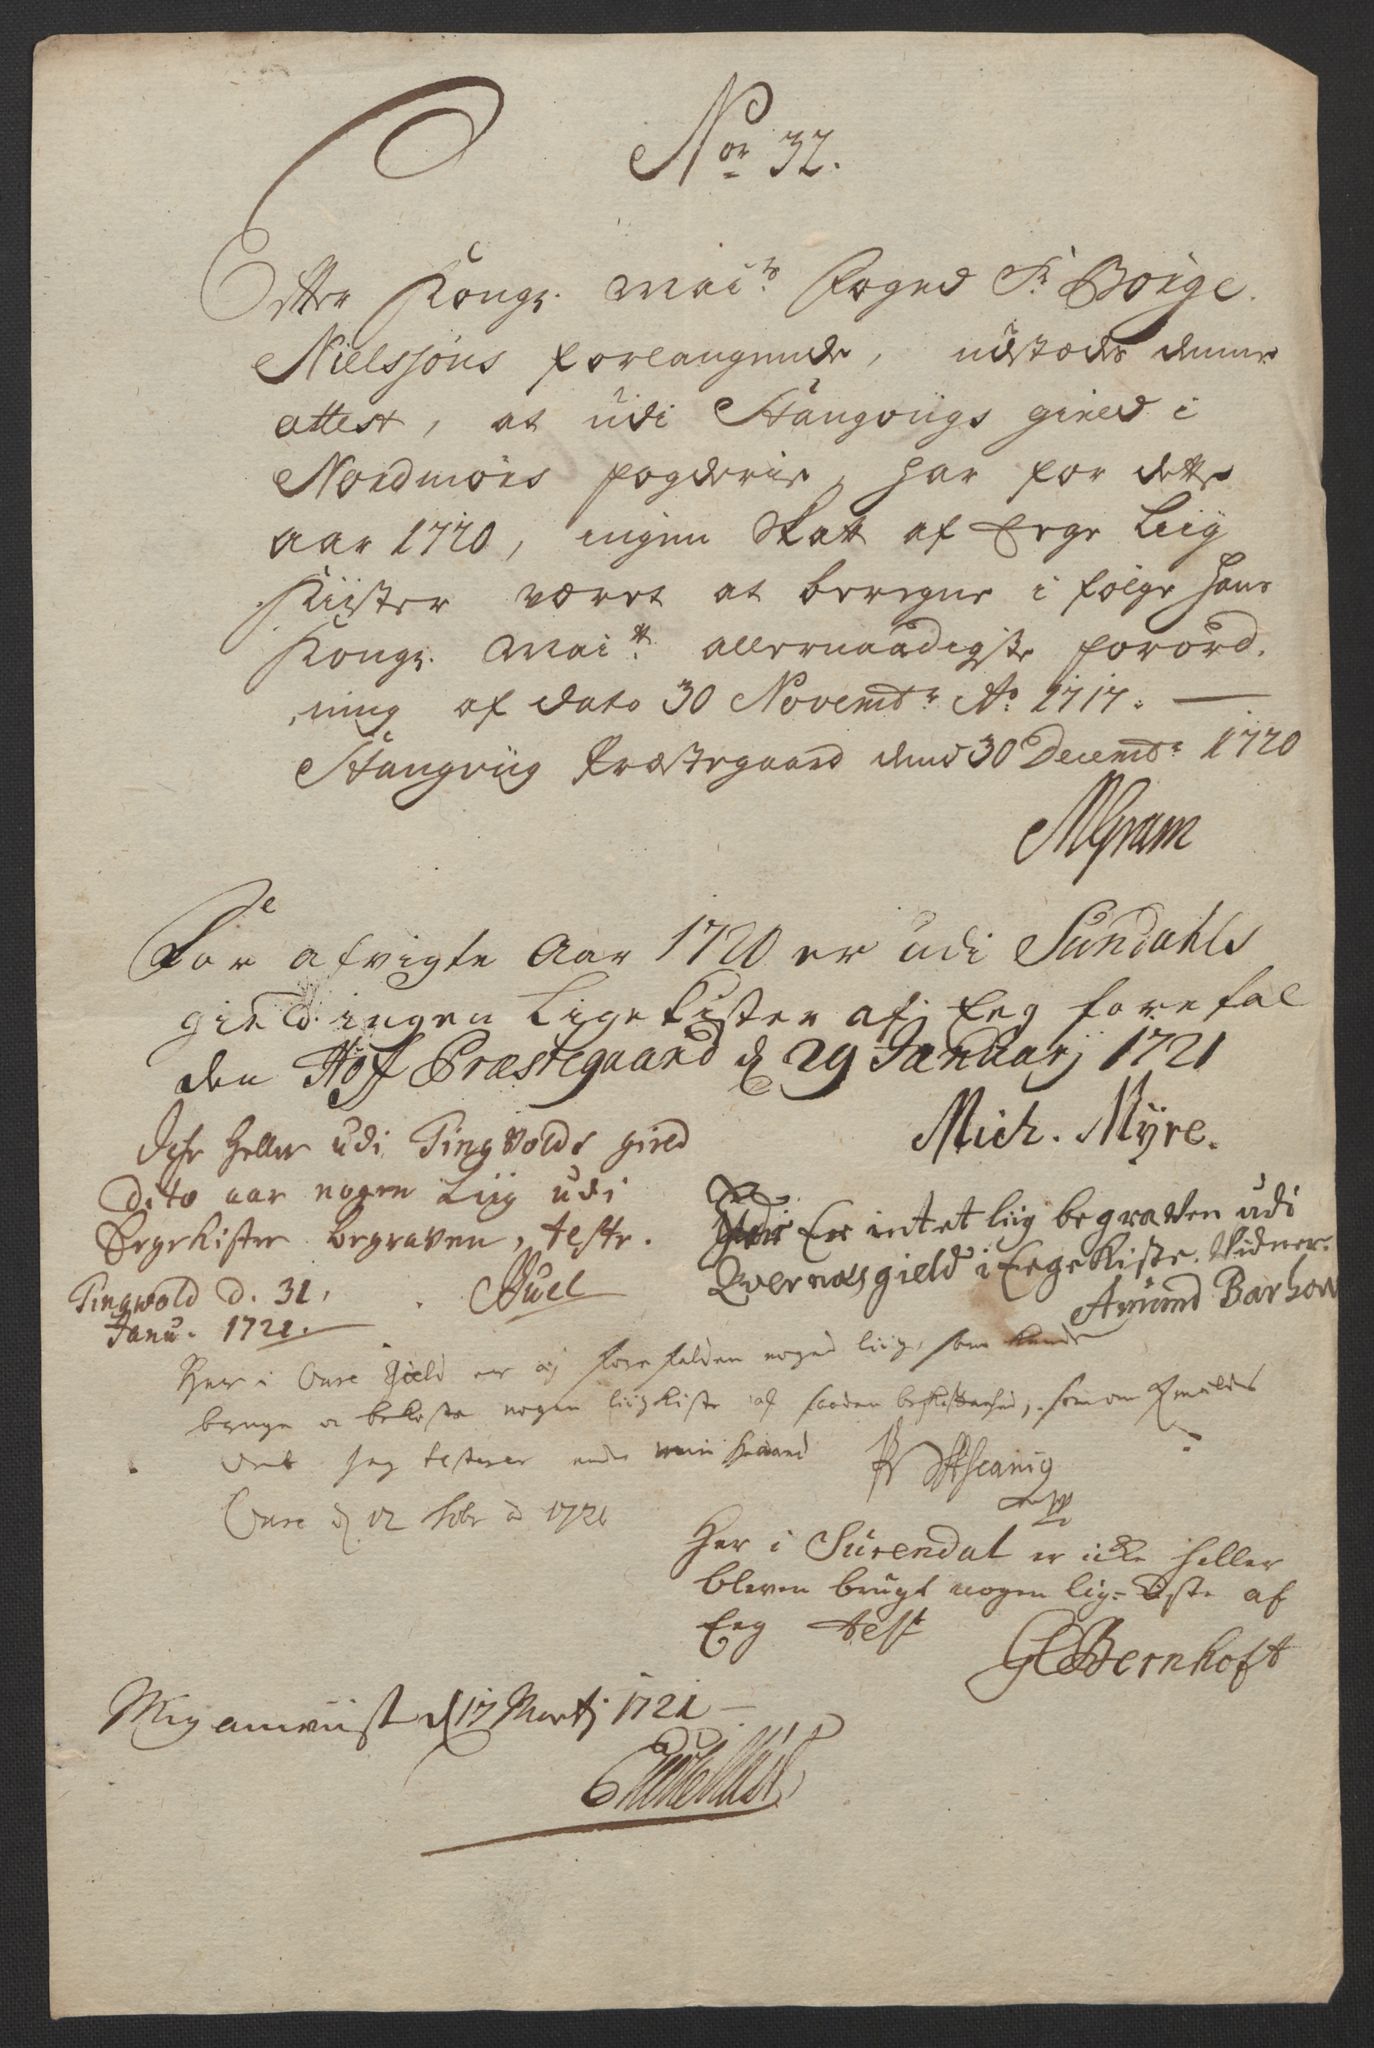 Nor 32.
Efter Kongl. Mai:ts Foged Sr Børge
Nielssøns forlangende, udstædes denne
attest, at udi Stangviigs gield i
Nordmørs fogderie, har for dette
aar 1720, ingen Skatt af Eege Liig
Kiister været at beregne i følge Hans
Kongl. Mai:tt allernaadigste forord,
ning af dato 30 Novembr Ao 1717.
Stangviig Præstegaard dend 30 Decembr 1720
MGram
For afvigte Aar 1720 er udi Sundahls
gield ingen Ligekister af Eeg forefal
den Hoff Præstegaard d 29 Januarj 1721
Mich. Myre.
Ichr heller udi Tingvolds gield
dito aar nogen Liig udi
Eegekister begraven, teste.
Tingwold d. 31. Buel
Janu. 1721.
Er intet liig begraven udi
Qvernæs gield i Eegekiste. Vidner.
Amund Barhow
Her i Øure Gield er ej forefalden noged liig, som kunde
bruge a bekoste nogen liigkiste af saadan beskaffenhed, som om
det jeg testerer under min Haand
Øure d 12 febr a 1721
Her i Surendal er icke heller
bleven brugt nogen lig-kiste af
Eeg test
GBernhoft
Mig anviist d 17 Martj 1721